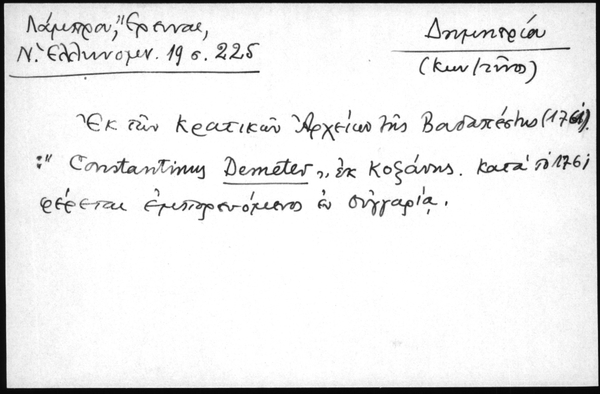 Λάμπρου, "Έρευναι,
Ν. Ἑλληνομν. 19 σ. 225
Δημητρίου
(Κων/τῖνος)
Ἐκ τῶν κρατικῶν Ἀρχείων τῆς Βουδαπέστης (1761).
:" Constantinus Demeter", ἐκ Κοζάνης. κατὰ τὸ 1761
φέρεται ἐμπορευόμενος ἐν Οὑγγαρίᾳ.